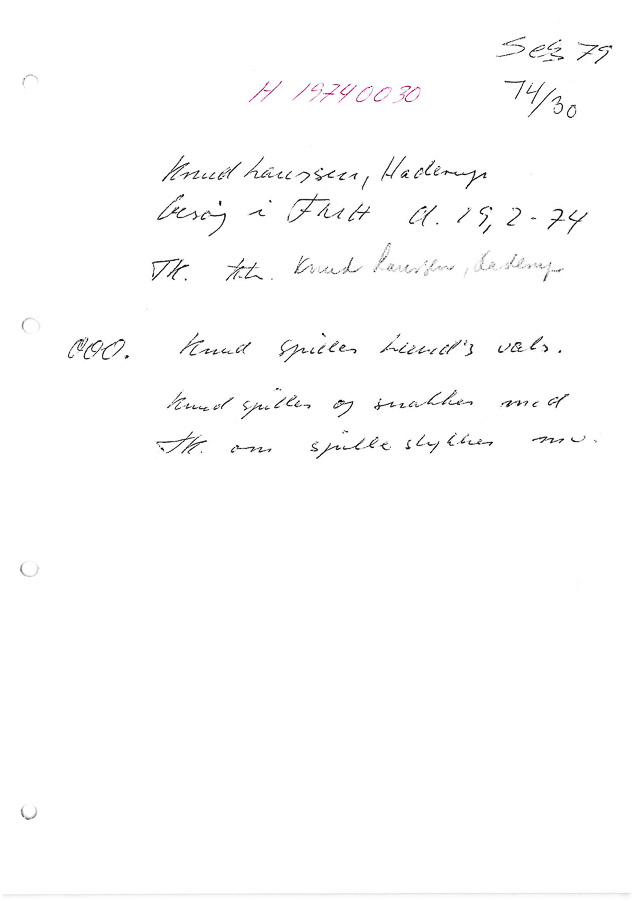 Seb 79
H 19740030
74/30
Knud Laurssen, Haderup
besøg i FMH d. 19, 2 - 74
TK. Knud Laurssen, Haderup
000. Knud spiller vals.
Knud spiller og snakker med
TK. om spillestykker mv.